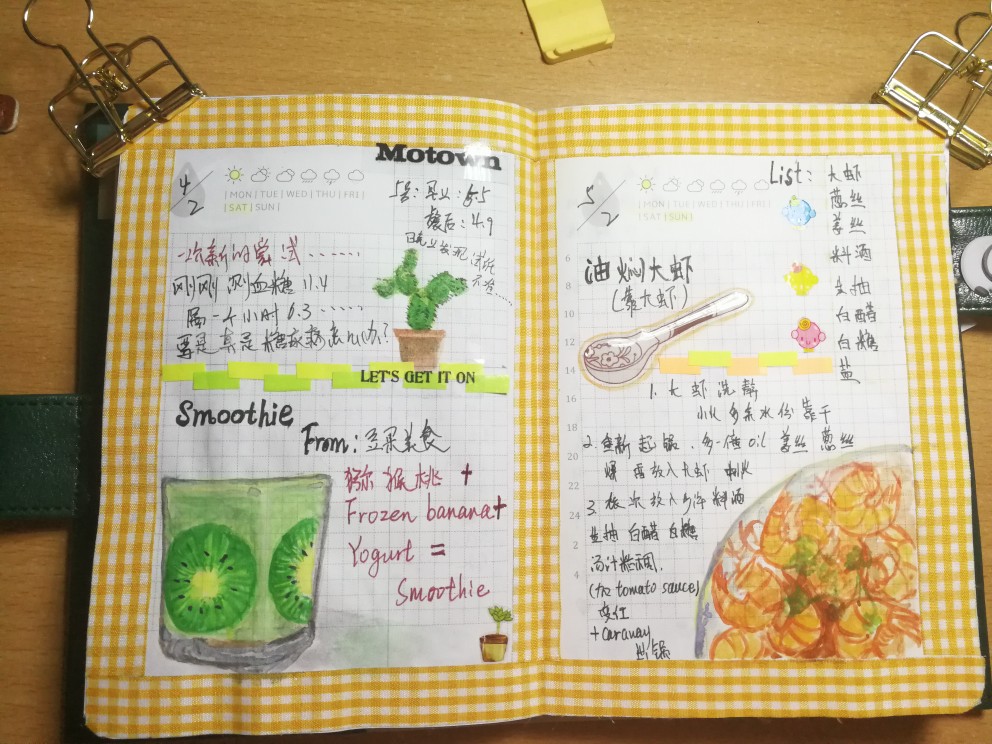 Motown
4/2
MON | TUE | WED | THU | FRI |
| SAT | SUN |
5号: 早上: 6.5
餐后: 4.9
一次新的尝试......
刚刚 测血糖 11.4
隔一个小时 6.3......
要是真是糖尿病怎么办?
LET'S GET IT ON
Smoothie
From: 豆果美食
猕猴桃 +
Frozen banana +
Yogurt =
Smoothie
5/2
MON | TUE | WED | THU | FRI |
SAT | SUN |
List: 大虾
葱丝
姜丝
料酒
生抽
白醋
白糖
盐
油焖大虾
(靠大虾)
6
8
10
12
14
16
18
20
22
24
2
4
1. 大虾洗静
小火多余水份靠干
2. 重新起锅. 多一倍 oil 姜丝 葱丝
爆香放入大虾
3. 依次放入少许料酒
生抽 白醋 白糖
汤汁粘稠.
(加 tomato sauce)
变红
+ caraway
出锅